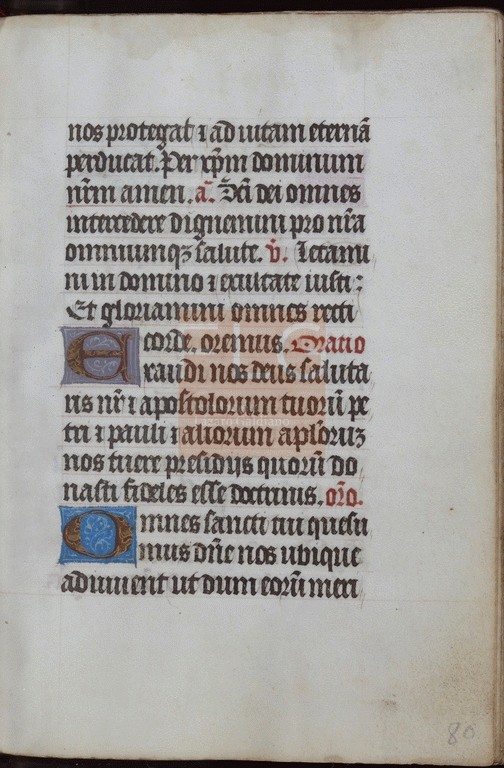 nos protegat ⁊ ad uitam eternā
perducat. Per xp̄m dominum
nr̄m amen. a᷃. S̄ci dei omnes
intercedere dignemini pro nr̄a
omniumqꝫ salute. v̄. Letami
ni in domino ⁊ exultate iusti:
Et gloriamini omnes recti
corde. oremus. Oratio
Exaudi nos deus saluta
ris nr̄ ⁊ apostolorum tuorū pe
tri ⁊ pauli ⁊ aliorum aplōruꝫ
nos tuere presidijs quorū do
nasti fideles esse doctrinis. or̄o.
Omnes sancti tui quesu
mus dn̄e nos ubique
adiuuent ut dum eorū meri
80